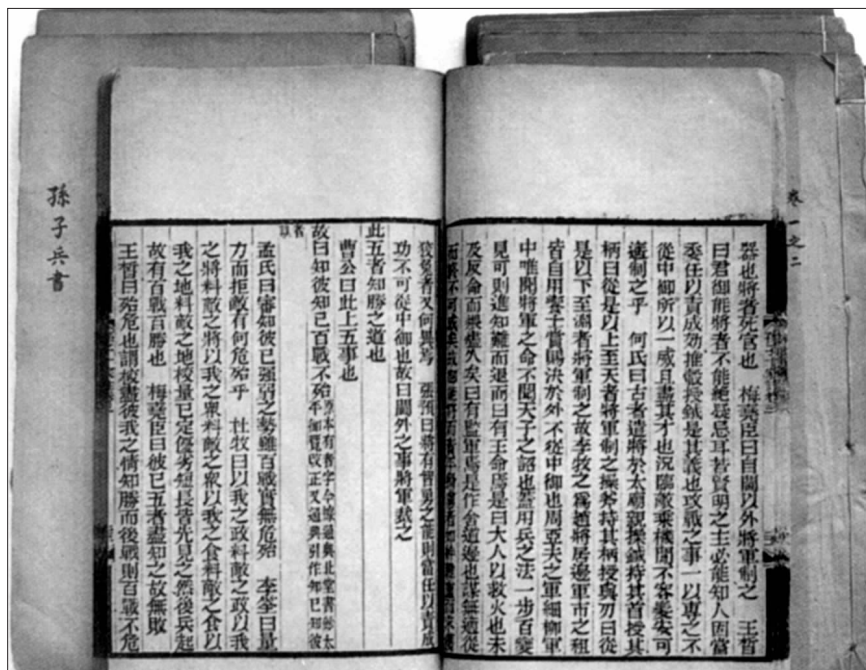 卷一之二
器也將者死官也　梅堯臣曰自閫以外將軍制之　王晳
曰君御能將者不能絕疑忌耳若賢明之主必能知人固當
委任以責成効推轂授鉞是其義也攻戰之事一以專之不
從中御所以一威且盡其才也況臨敵乘機間不容髮安可
遙制之乎　何氏曰古者遣將於太廟親操鉞持其首授其
柄曰從是以上至天者將軍制之操斧持其柄授與刃曰從
是以下至淵者將軍制之故李牧之爲趙將居邊軍市之租
皆自用饗士賞賜決於外不從中御也周亞夫之軍細柳軍
中唯聞將軍之命不聞天子之詔也蓋用兵之法一步百變
見可則進知難而退而曰有王命焉是曰大人以救火也未
及反命而煨燼久矣曰有監軍焉是作舍道邊也謀無適從
狡兔者又何異焉　張預曰將有智勇之能則當任以責成
功不可從中御也故曰閫外之事將軍裁之
此五者知勝之道也
曹公曰此上五事也
故曰知彼知己百戰不殆
原本有者字今據通典北堂書鈔太
平御覽改正又通典引作知己知彼
者
孟氏曰審知彼己强弱之勢雖百戰實無危殆　李筌曰量
力而拒敵有何危殆乎　杜牧曰以我之政料敵之政以我
之將料敵之將以我之眾料敵之眾以我之食料敵之食以
我之地料敵之地校量已定優劣短長皆先見之然後兵起
故有百戰百勝也　梅堯臣曰彼己五者盡知之故無敗
王晳曰殆危也謂校盡彼我之情知勝而後戰則百戰不危
孫子兵書